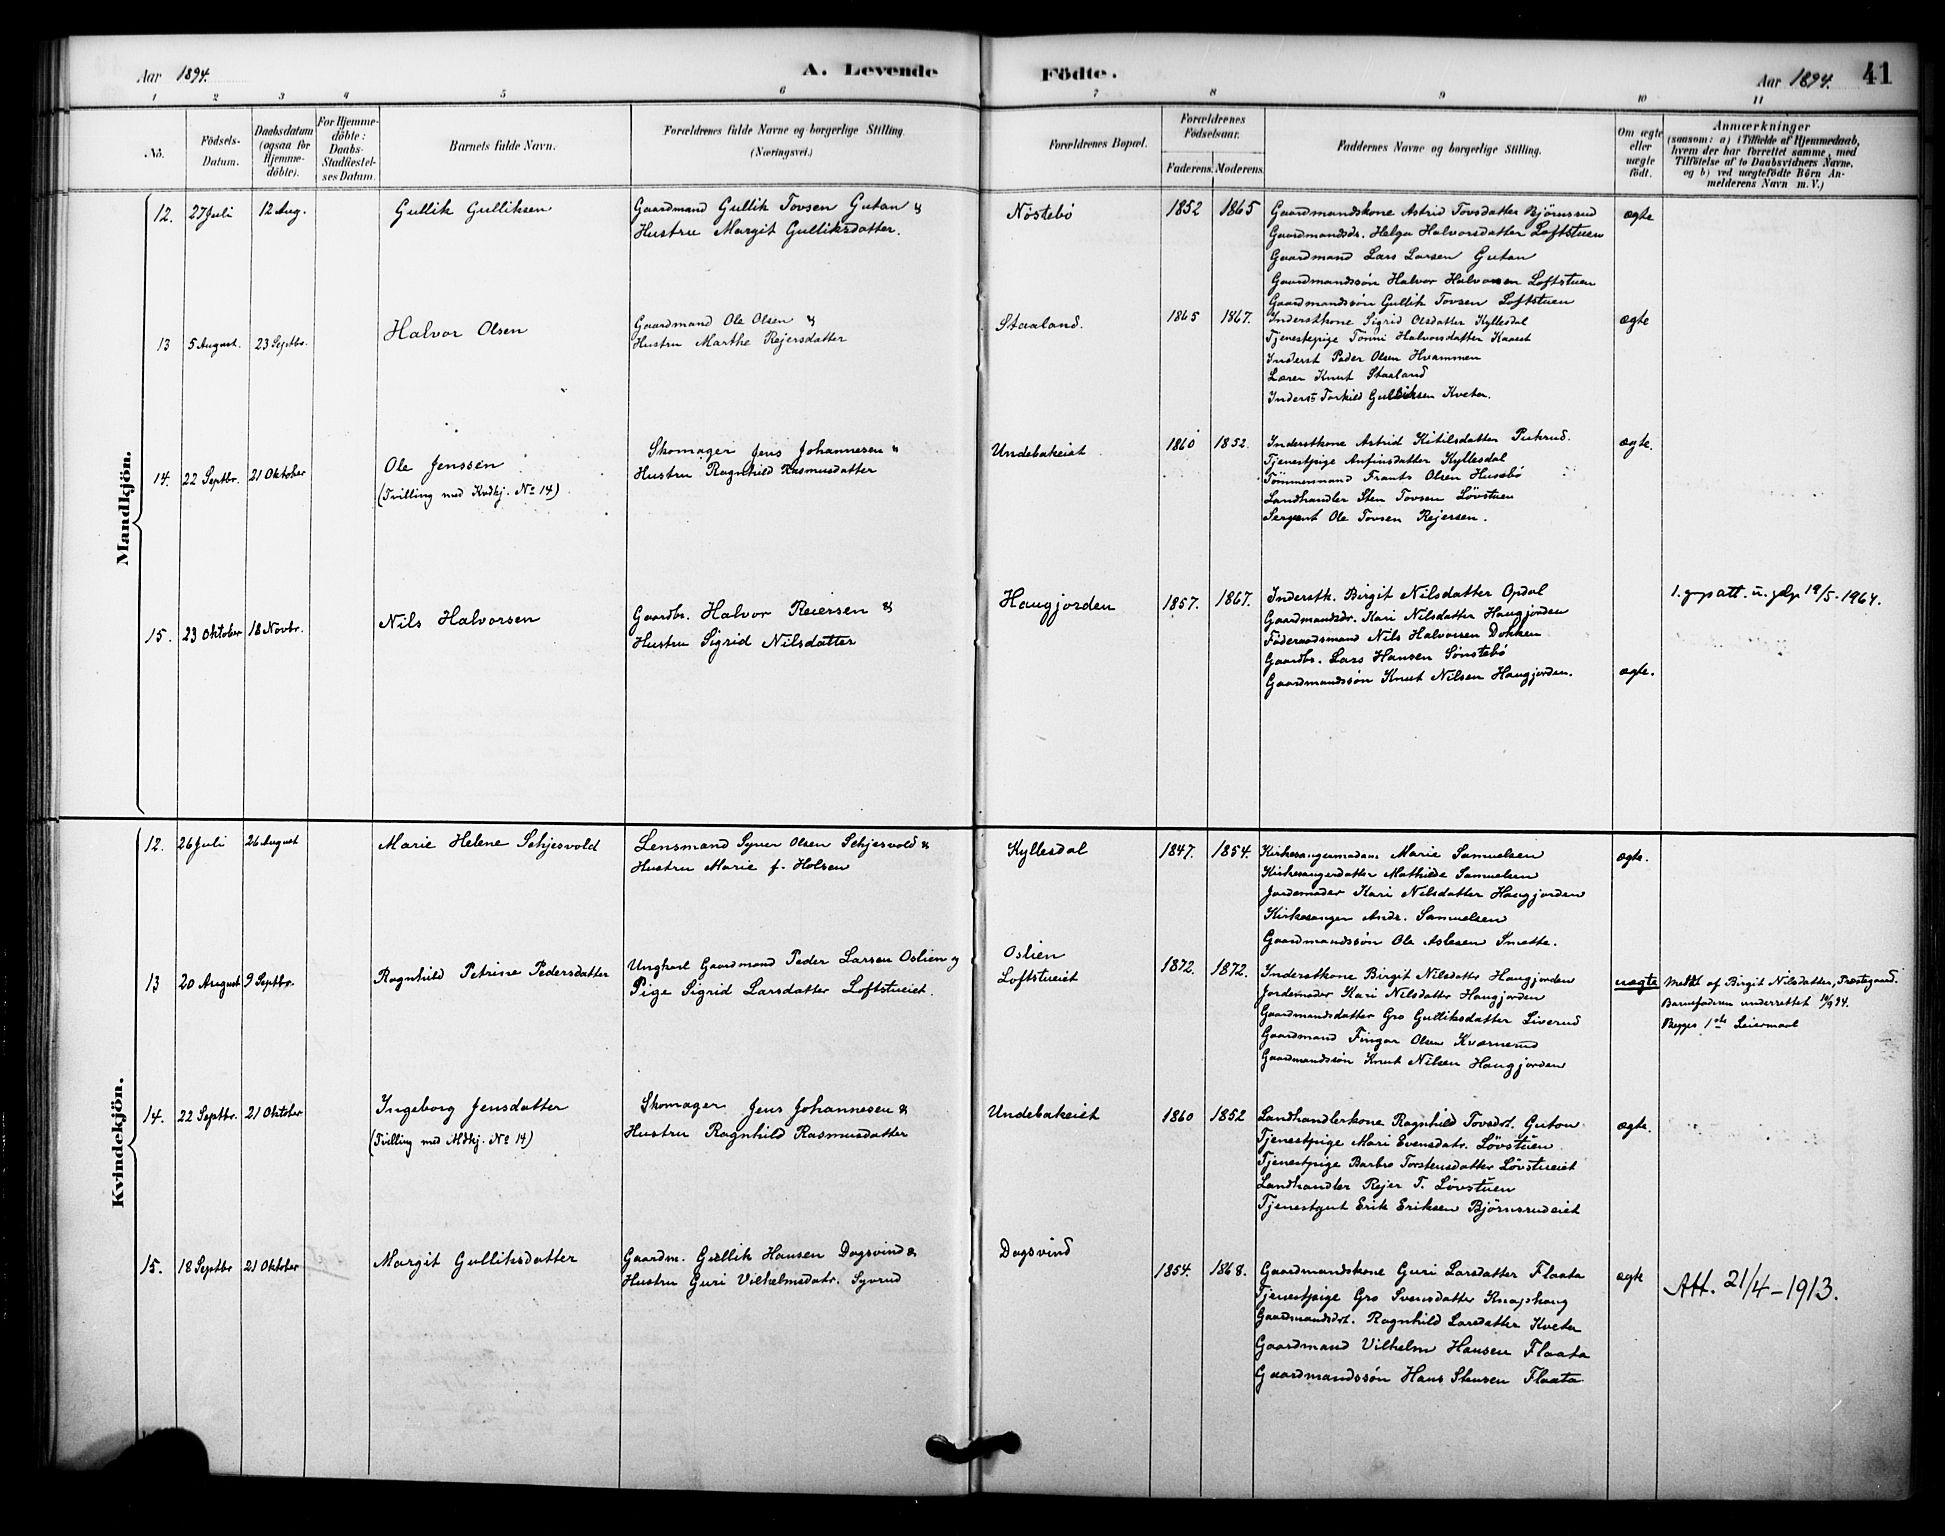 Aar 1894.
A. Levende Födte.
Aar 1894. 41
1 2 3 4 5 6 7 8 9 10 11
No.
Födsels-Datum.
Daabsdatum (ogsaa for Hjemme-döbte).
For Hjemme-döbte: Daabs-Stadfæstel-ses Datum.
Barnets fulde Navn.
Forældrenes fulde Navne og borgerlige Stilling. (Næringsvei.)
Forældrenes Bopæl.
Forældrenes Födselsaar.
Faderens. Moderens.
Faddernes Navne og borgerlige Stilling.
Om ægte eller uægte födt.
Anmærkninger
(saasom: a) i Tilfælde af Hjemmedaab,
hvem der har forrettet samme, med
Tilföielse af to Daabsvidners Navne,
og b) ved uægtefödte Börn An-
melderens Navn m. V.)
Mandkjön.
12. 27 Juli 12 Aug. Gullik Gulliksen
Gaardmand Gullik Tovsen Gutan &
Hustru Margit Gulliksdatter.
Nöstebö 1852 1865
Gaardmandskone Astrid Tovsdatter Björnsrud
Gaardmandsdr. Helga Halvorsdatter Loftstuen
Gaardmand Lars Larsen Gutan
Gaardmandssön Halvor Halvorsen Loftstuen
Gaardmandssön Gullik Tovsen Loftstuen
ægte
13 5 August. 23 Septbr. Halvor Olsen
Gaardmand Ole Olsen &
Hustru Marthe Rejersdatter
Staaland. 1865 1867.
Inderstkone Sigrid Olsdatter Kyllesdal
Tjenestepige Tönni Halvorsdatter Kaaset
Inderst Peder Olsen Hvammen
Lærer Knut Staaland
Inderst Torkild Gulliksen Kveta.
ægte
14. 22 Septbr. 21 Oktober
Ole Jenssen
(Tvilling med Kvdkj. No 14)
Skomager Jens Johannesen &
Hustru Ragnhild Rasmusdatter
Undebakeiet 1860 1852.
Inderstkone Astrid Kitilsdatter Pukrud.
Tjenestpige Anfinsdatter Kyllesdal
Tömmermand Frants Olsen Husebö
Landhandler Sten Tovsen Lövstuen
Sergent Ole Tovsen Rejersen.
ægte.
15. 23 Oktober 18 Novbr. Nils Halvorsen
Gaardbr. Halvor Reiersen &
Hustru Sigrid Nilsdatter
Haugjorden 1857. 1867.
Inderstk. Birgit Nilsdatter Opdal
Gaardmandsdr. Kari Nilsdatter Haugjorden
Föderaadsmand Nils Halvorsen Dokken
Gaardbr. Lars Hansen Sönstebö
Gaardmandssön Knut Nilsen Haugjorden.
ægte.
19/5-1964.
Kvindekjön.
12. 26 Juli 26 August Marie Helene Schjesvold
Lensmand Syver Olsen Schjesvold &
Hustru Marie f. Holsen
Kyllesdal 1847. 1854.
Kirkesangermadam Marie Samuelsen
Kirkesangerdatter Mathilde Samuelsen
Jordemoder Kari Nilsdatter Haugjorden
Kirkesanger Andr. Samuelsen
Gaardmandssön Ole Aslesen Smette.
ægte.
13 20 August 9 Septbr. Ragnhild Petrine Pedersdatter
Ungkarl Gaardmand Peder Larsen Oslien og
Pige Sigrid Larsdatter Loftstueiet.
Oslien
Loftstueiet
1872. 1872.
Inderstkone Birgit Nilsdatter Haugjorden
Jordemoder Kari Nilsdatter Haugjorden
Gaardmandsdatter Gro Gulliksdatter Liverud
Gaardmand Fingar Olsen Kværnerud
Gaardmandssön Knut Nilsen Haugjorden
uægte
Meldt af Birgit Nilsdatter, Præstegaard.
Barnefaderen underrettet 10/9 94.
Begges 1ste Leiermaal
14. 22 Septbr. 21 Oktober
Ingeborg Jensdatter
(Tvilling med Mdkj. No 14)
Skomager Jens Johannesen &
Hustru Ragnhild Rasmusdatter
Undebakeiet 1860 1852
Landhandlerkone Ragnhild Tovsdt. Guton
Tjenestpige Mari Evensdatr. Lövstuen
Tjenestpige Barbro Torstensdatter Lövstueiet
Landhandler Rejer T. Lövstuen
Tjenestgut Erik Eriksen Björnsrudeiet
ægte.
15. 18 Septbr 21 Oktober Margit Gulliksdatter
Gaardm. Gullik Hansen Dagsvind &
Hustru Guri Vilhelmsdatr. Syvrud
Dagsvind 1854. 1868.
Gaardmandskone Guri Larsdatter Flaata
Tjenestpige Gro Svensdatter Knaphaug
Gaardmandsdt. Ragnhild Larsdatter Kveta
Gaardmand Vilhelm Hansen Flaata
Gaardmandssön Hans Stensen Flaata
ægte
Att. 21/4-1913.